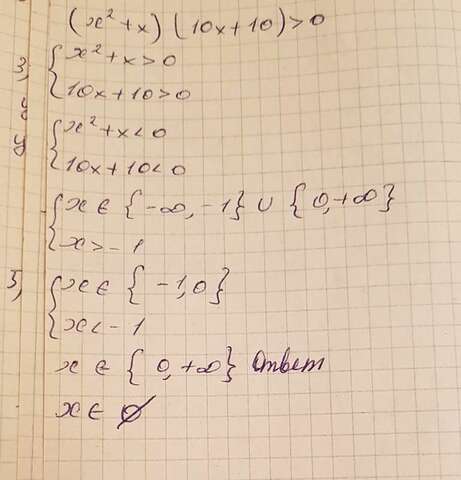 (x²+x)(10x+10)>0
3, { x²+x>0
10x+10>0
y
y { x²+x<0
10x+10<0
{ x∈{-∞,-1}∪{0,+∞}
x>-1
5, { x∈{-1,0}
x<-1
x∈{0,+∞} Ответ
x∈∅